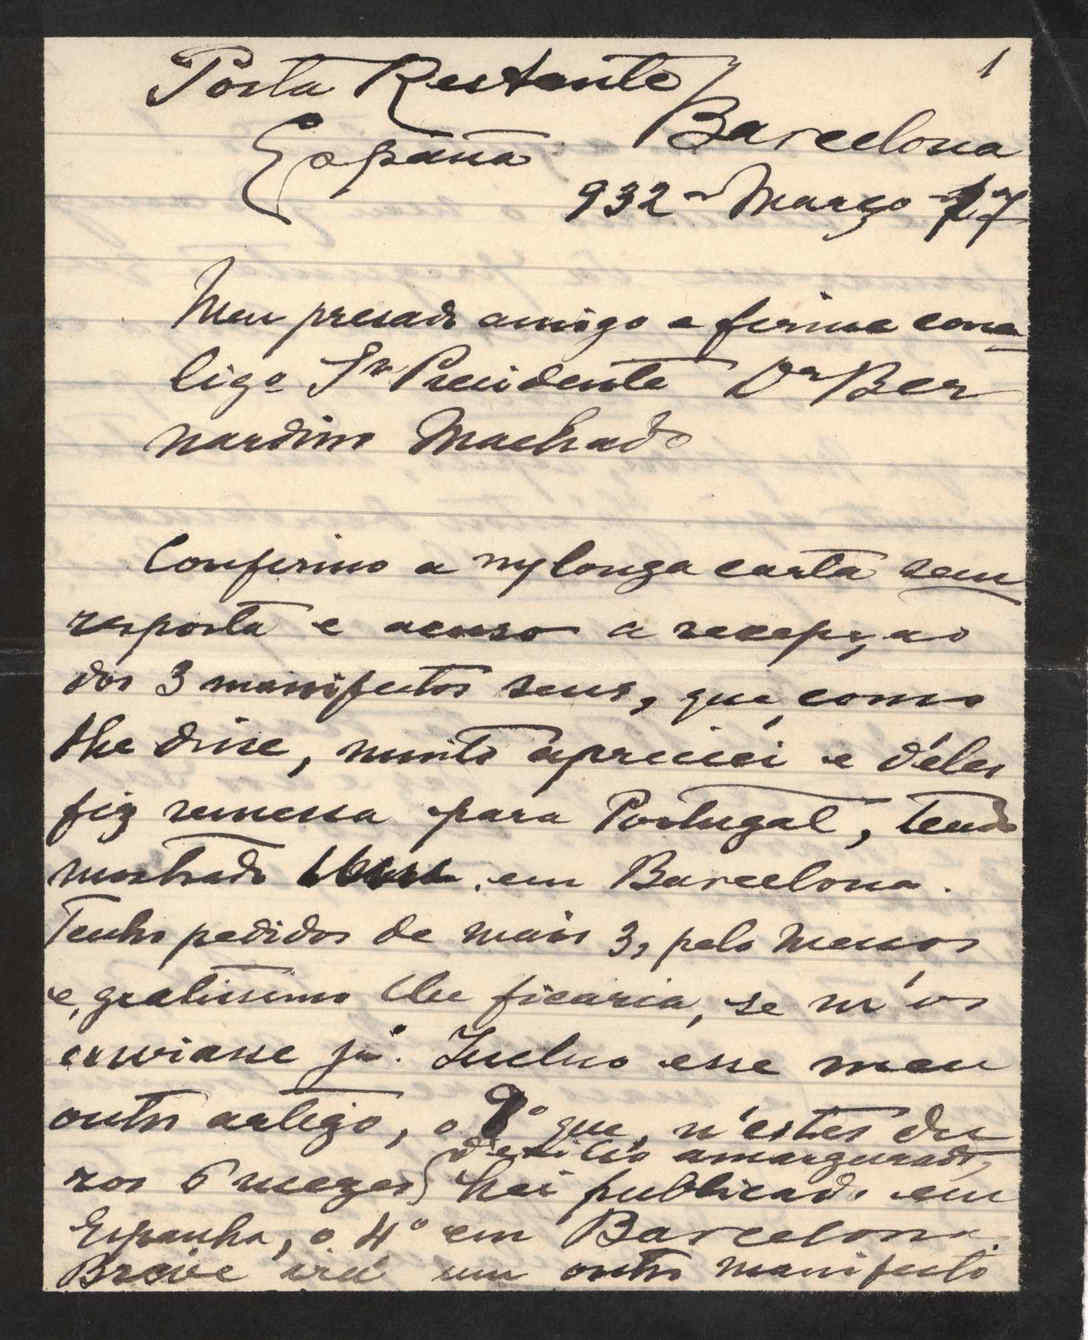 1
Posta Restante
Barcelona
España
932 - Março - 17
Meu presado amigo e firme corre-
lig.o Sr. Presidente Dr Ber
nardino Machado
Confirmo a m/ longa carta sem
resposta e acuso a recepção
dos 3 manifestos seus, que, como
lhe disse, muito apreciei e d'eles
fiz remessa para Portugal, tendo
mostrado em Barcelona.
Tenho pedidos de mais 3, pelo menos
e, gratissimo lhe ficaria, se m'os
enviasse já. Incluo esse meu
outro artigo, o 9º que, n'estes du
d'exilio amargurado,
ros 6 mezes hei publicado em
Espanha, o 4º em Barcelona.
Breve irá um outro manifesto